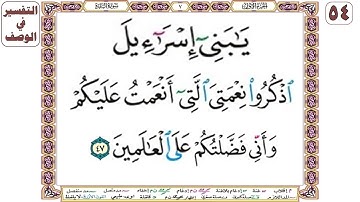 التفسير
في
الوصف
٥٤
٧
يَٰبَنِيٓ إِسۡرَٰٓءِيلَ
ٱذۡكُرُواْ نِعۡمَتِيَ ٱلَّتِيٓ أَنۡعَمۡتُ عَلَيۡكُمۡ
وَأَنِّي فَضَّلۡتُكُمۡ عَلَى ٱلۡعَٰلَمِينَ ٤٧